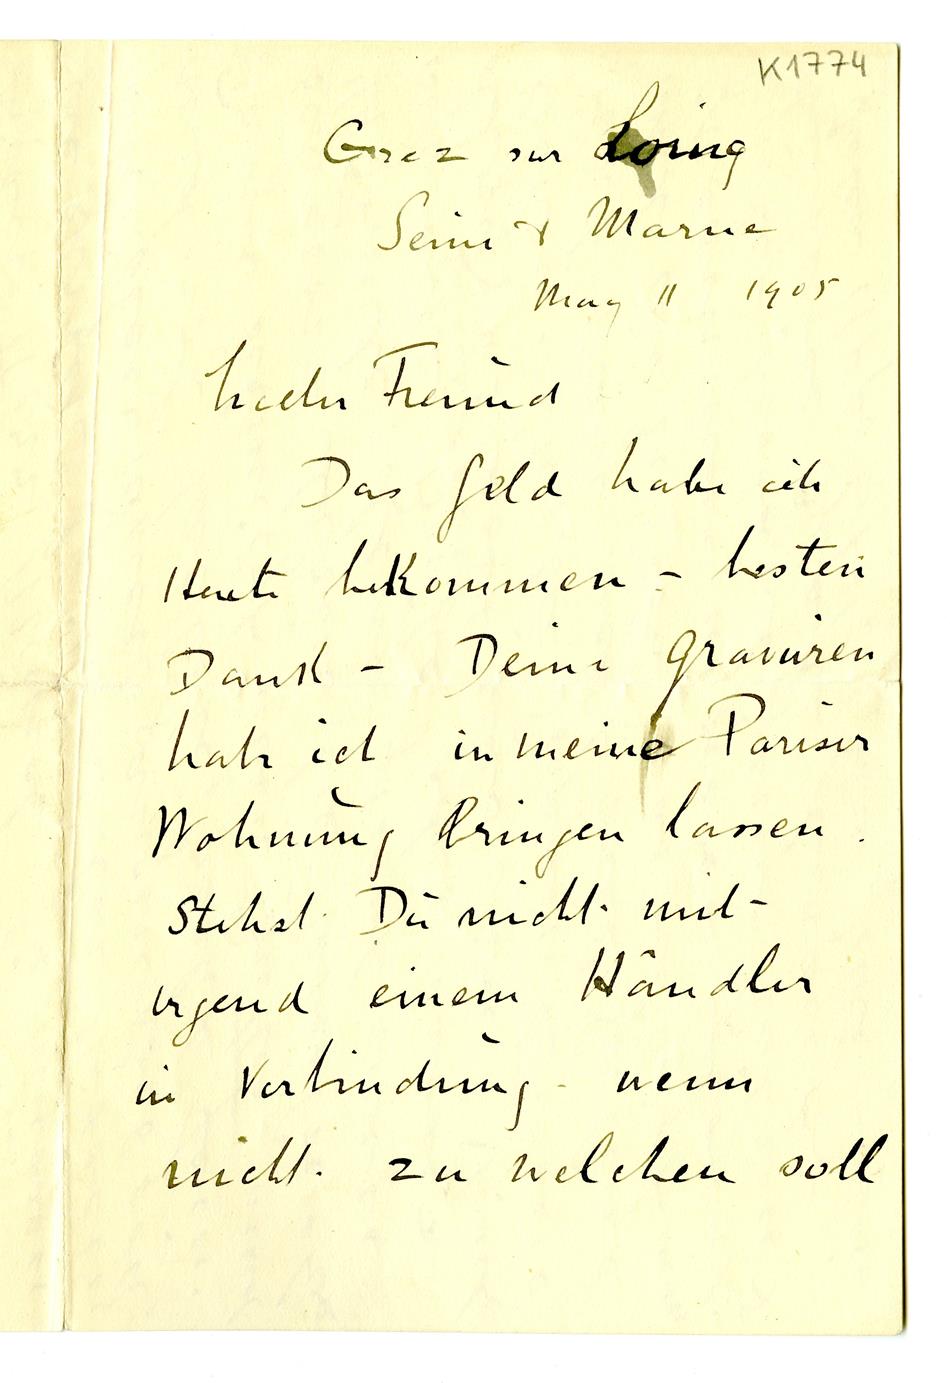 K1774
Grez sur Loing
Seine & Marne
May 11 1905
Lieber Freund
Das Geld habe ich
Heute bekommen – besten
Dank – Deine Gravüren
habe ich in meine Pariser
Wohnung bringen lassen.
Stehst Du nicht mit
irgend einem Händler
in Verbindung – wenn
nicht zu welchen soll